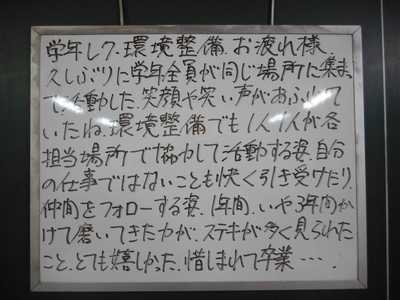 学年レク.環境整備.お疲れ様.
久しぶりに学年全員が同じ場所に集まっ
て、活動した.笑顔や笑い声があふれて
いたね.環境整備でも1人1人が各
担当場所で協力して活動する姿.自分
の仕事ではないことも快く引き受けたり.
仲間をフォローする姿.1年間.いや3年間か
けて磨いてきた力が.ステキが多く見られた
こと.とても嬉しかった.惜しまれて卒業….